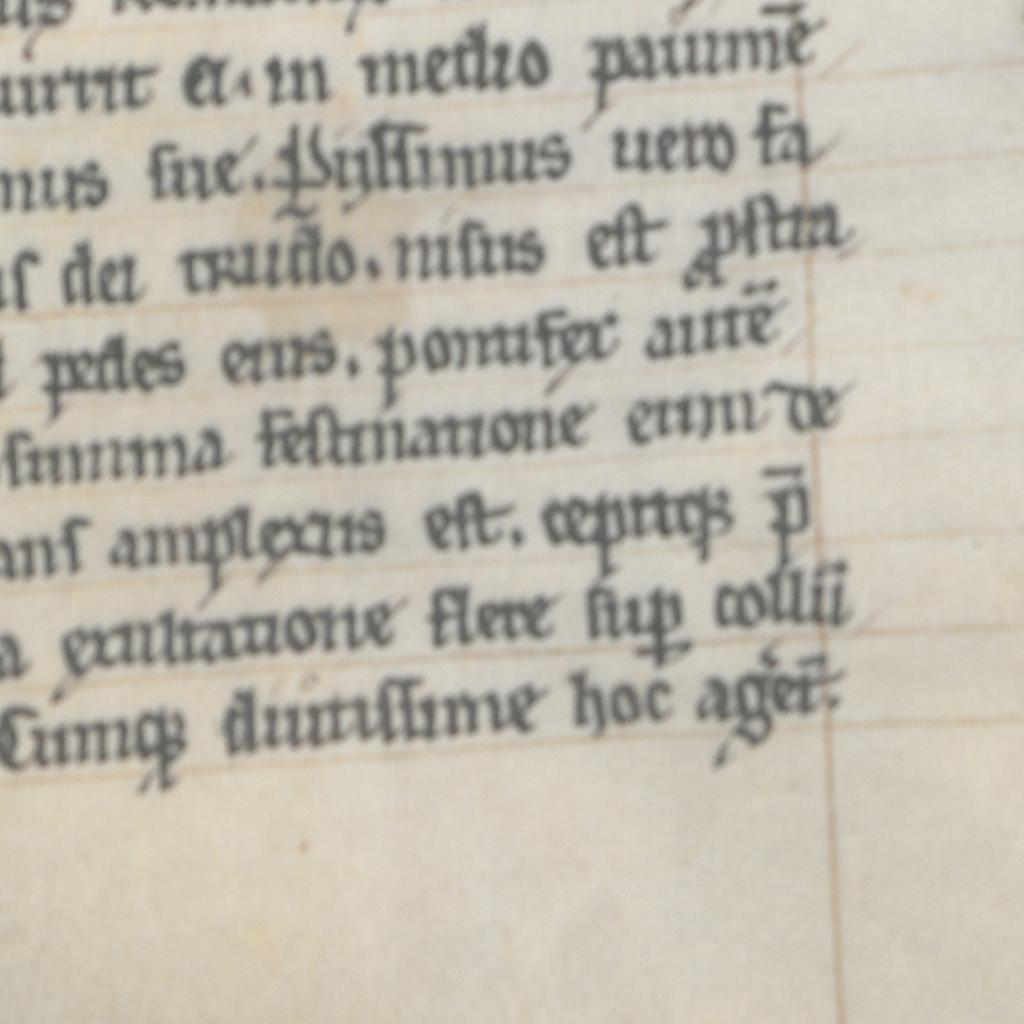 ei· in medio pauim̄e
sue. Pijssimus uero fa
dei tirudo. nisus est ꝓstra
pedes eius. pontifex aut̄e
summa festinatione eum de
ans amplexus est. cepitqꝫ p̄
a exultatione flere sup collū
Cumqꝫ diutissime hoc agēt.